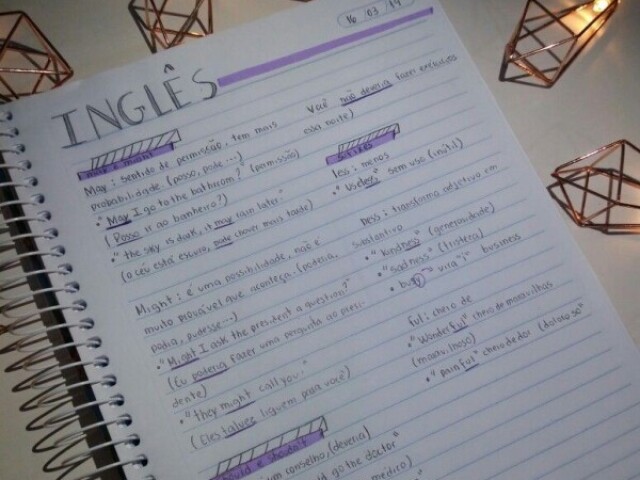 16 / 03 / 19
INGLÊS
may e might
May: sentido de permissão, tem mais
probabilidade (posso, pode...)
• "May I go to the bathroom? (permissão)
(Posso ir ao banheiro?)
• "the sky is dark, it may rain later."
(o céu está escuro, pode chover mais tarde)
Might: é uma possibilidade, não é
muito provável que aconteça. (poderia,
podia, pudesse...)
• "Might I ask the president a question?"
(Eu poderia fazer uma pergunta ao presi-
dente)
• "they might call you."
(Eles talvez liguem para você)
should e shouldn't
um conselho, (deveria)
go the doctor"
médico)
Você não deveria fazer exercícios
essa noite)
sufixes
less: menos
• "useless" sem uso (inútil)
ness: transforma adjetivo em
substantivo
• "kindness" (generosidade)
• "sadness" (tristeza)
• busy "y" vira "i" business
ful: cheio de
• "Wonderful" cheio de maravilhas
(maravilhoso)
• "painful" cheio de dor (doloroso)